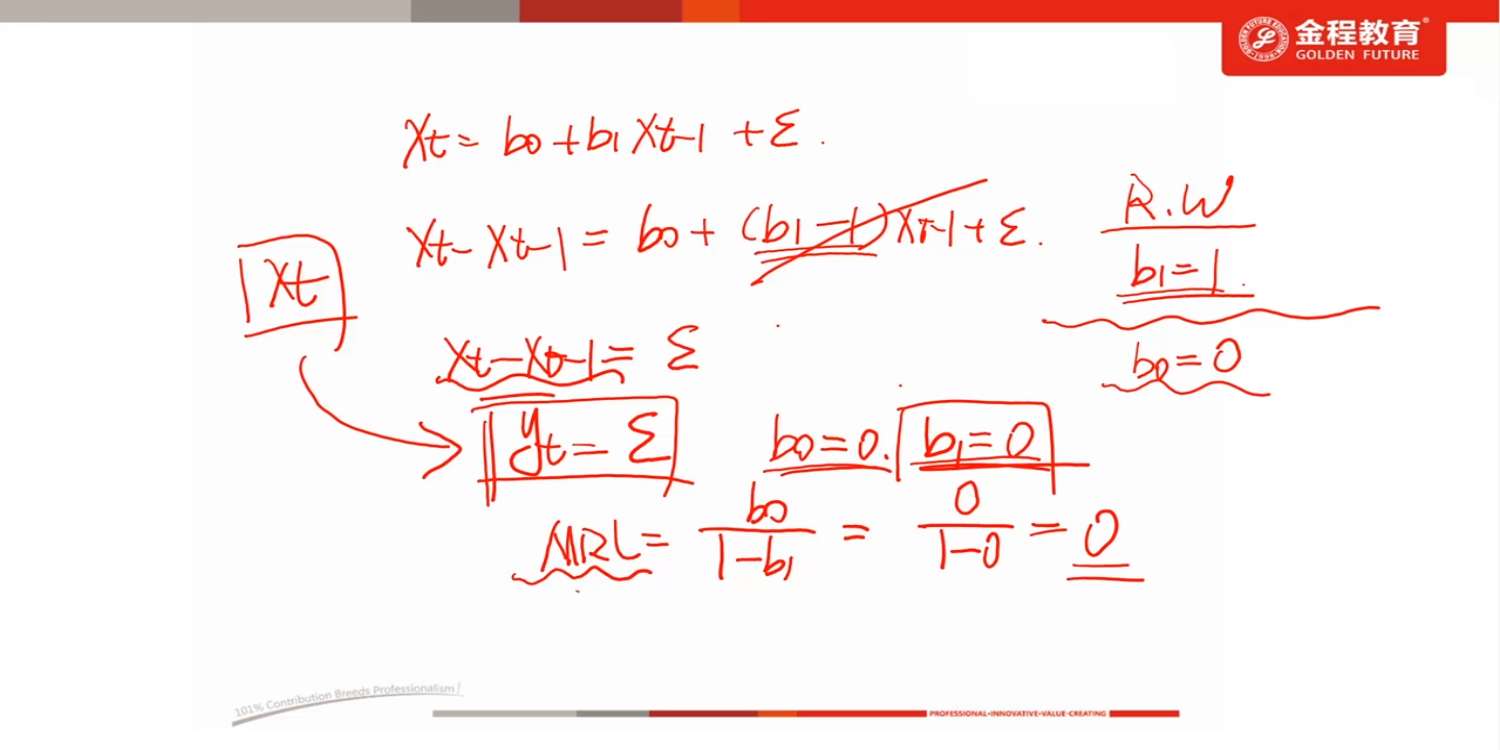 金程教育
GOLDEN FUTURE
Xt = b0 + b1 Xt-1 + ε.
Xt - Xt-1 = b0 + (b1 - 1) Xt-1 + ε.
R.W
b1 = 1.
b0 = 0
Xt
Xt - Xt-1 = ε
yt = ε
b0 = 0. b1 = 0
MRL = b0/(1-b1) = 0/(1-0) = 0
101% Contribution Breeds Professionalism!
PROFESSIONAL•INNOVATIVE•VALUE-CREATING